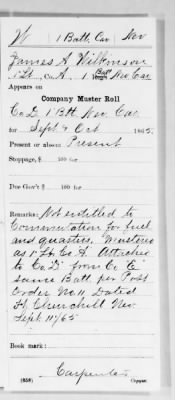 W | 1 Batt. Cav. | Nev
James A. Wilkinson
1 Lt, Co. A, 1 Batt Nev Cav
Appears on
Company Muster Roll
Co D, 1 Btt. Nev. Cav
for Sept & Oct, 1865.
Present or absent Present
Stoppage, $ 100 for
Due Gov't $ 100 for
Remarks: Not entitled to
Commutation for fuel
and quarters. Mustered
as 1" Lt. Co A. Attached
to Co "D" from Co "E"
same Batt. per Post
Order No 11 Dated
Ft Churchill Nev
Sept 11"/65
Book mark:
(858)
Carpenter
Copyist.